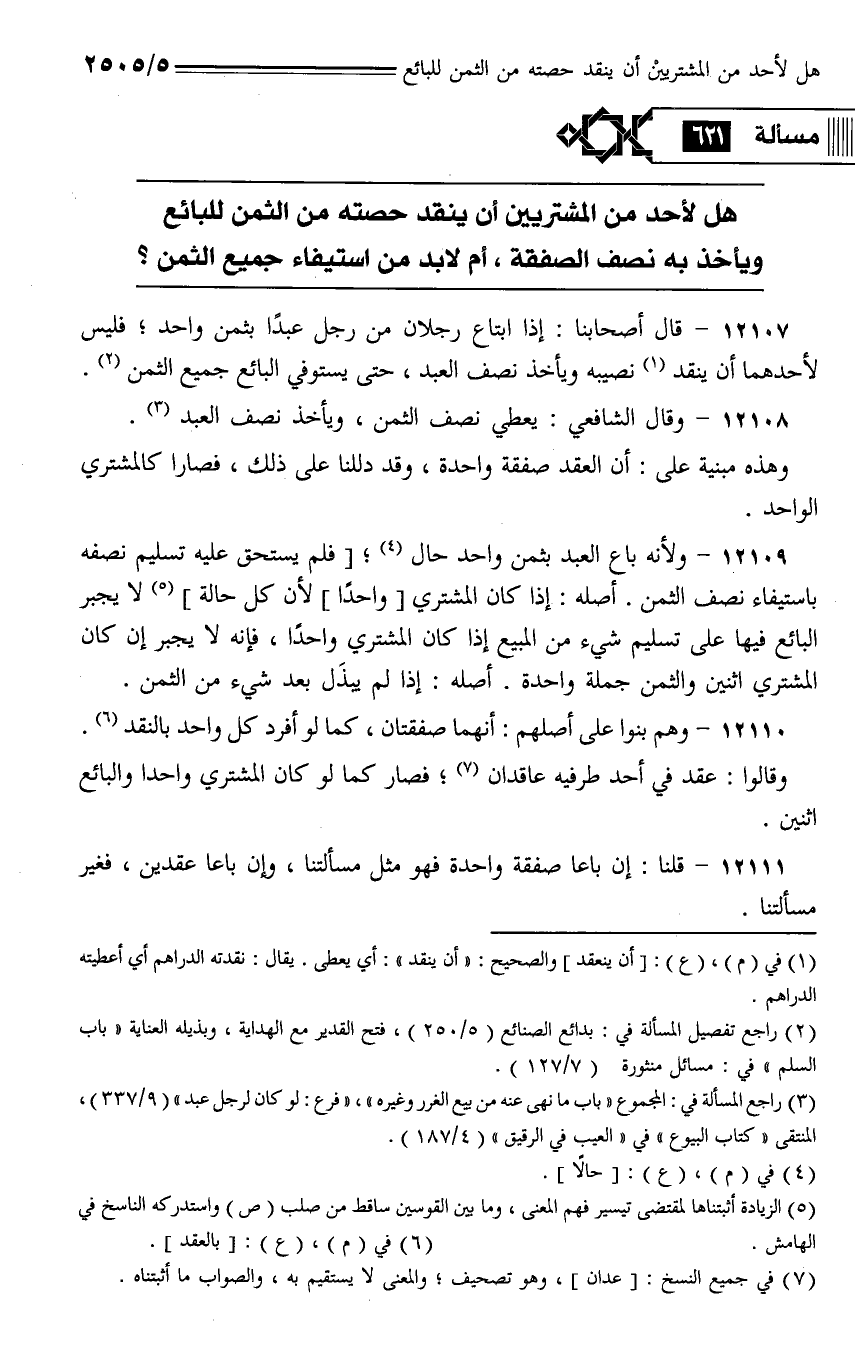 هل لأحد من المشتريينْ أن ينقد حصته من الثمن للبائع ٢٥٠٥/٥
مسألة ٦٢١
هل لأحد من المشتريين أن ينقد حصته من الثمن للبائع
ويأخذ به نصف الصفقة ، أم لابد من استيفاء جميع الثمن ؟
١٢١٠٧ – قال أصحابنا : إذا ابتاع رجلان من رجل عبدًا بثمن واحد ؛ فليس
لأحدهما أن ينقد (١) نصيبه ويأخذ نصف العبد ، حتى يستوفي البائع جميع الثمن (٢) .
١٢١٠٨ – وقال الشافعي : يعطي نصف الثمن ، ويأخذ نصف العبد (٣) .
وهذه مبنية على : أن العقد صفقة واحدة ، وقد دللنا على ذلك ، فصارا كالمشتري
الواحد .
١٢١٠٩ – ولأنه باع العبد بثمن واحد حال (٤) ؛ [ فلم يستحق عليه تسليم نصفه
باستيفاء نصف الثمن . أصله : إذا كان المشتري [ واحدًا ] لأن كل حالة ] (٥) لا يجبر
البائع فيها على تسليم شيء من المبيع إذا كان المشتري واحدًا ، فإنه لا يجبر إن كان
المشتري اثنين والثمن جملة واحدة . أصله : إذا لم يبذَل بعد شيء من الثمن .
١٢١١٠ – وهم بنوا على أصلهم : أنهما صفقتان ، كما لو أفرد كل واحد بالنقد (٦) .
وقالوا : عقد في أحد طرفيه عاقدان (٧) ؛ فصار كما لو كان المشتري واحدا والبائع
اثنين .
١٢١١١ – قلنا : إن باعا صفقة واحدة فهو مثل مسألتنا ، وإن باعا عقدين ، فغير
مسألتنا .
(١) في ( م ) ، ( ع ) : [ أن ينعقد ] والصحيح : « أن ينقد » : أي يعطى . يقال : نقدته الدراهم أي أعطيته
الدراهم .
(٢) راجع تفصيل المسألة في : بدائع الصنائع ( ٢٥٠/٥ ) ، فتح القدير مع الهداية ، وبذيله العناية « باب
السلم » في : مسائل منثورة ( ١٢٧/٧ ) .
(٣) راجع المسألة في : المجموع « باب ما نهى عنه من بيع الغرر وغيره » ، « فرع : لو كان لرجل عبد » ( ٣٣٧/٩ ) ،
المنتقى « كتاب البيوع » في « العيب في الرقيق » ( ١٨٧/٤ ) .
(٤) في ( م ) ، ( ع ) : [ حالًا ] .
(٥) الزيادة أثبتناها لمقتضى تيسير فهم المعنى ، وما بين القوسين ساقط من صلب ( ص ) واستدركه الناسخ في
الهامش . (٦) في ( م ) ، ( ع ) : [ بالعقد ] .
(٧) في جميع النسخ : [ عدان ] ، وهو تصحيف ؛ والمعنى لا يستقيم به ، والصواب ما أثبتناه .